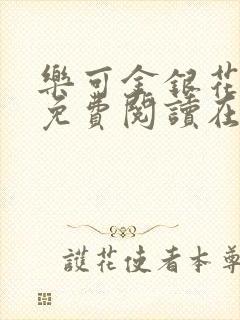 樂可金銀花
免費閱讀在
護花使者本尊